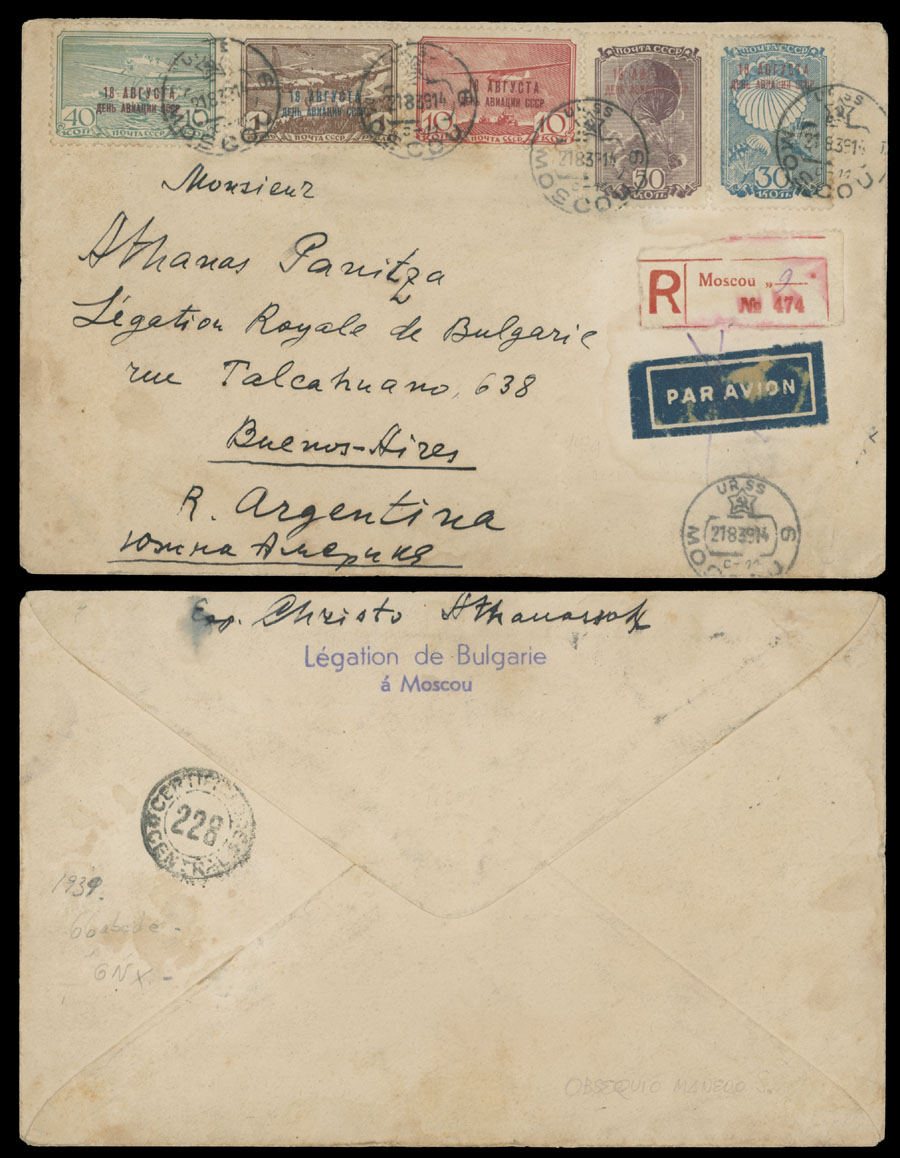 40 КОП. 18 АВГУСТА ДЕНЬ АВИАЦИИ СССР ПОЧТА СССР
18 АВГУСТА ДЕНЬ АВИАЦИИ СССР ПОЧТА СССР
10 АВГУСТА АВИАЦИИ СССР ПОЧТА СССР 10
ПОЧТА СССР 18 АВГУСТА ДЕНЬ АВИАЦИИ СССР 50 КОП.
ПОЧТА СССР 18 АВГУСТА ДЕНЬ АВИАЦИИ СССР 30 КОП.
Monsieur
Athanas Panitza
Légation Royale de Bulgarie
rue Talcahuano, 638
Buenos-Aires
R. Argentina
Южна Америка
R Moscou „9
№ 474
PAR AVION
UR.SS
21 8 39 14
MOSCOU 9
Exp. Christo Athanassoff
Légation de Bulgarie
á Moscou
228
CENTRAL
1939.
GNX.-
OBSEQUIO MANELO S.